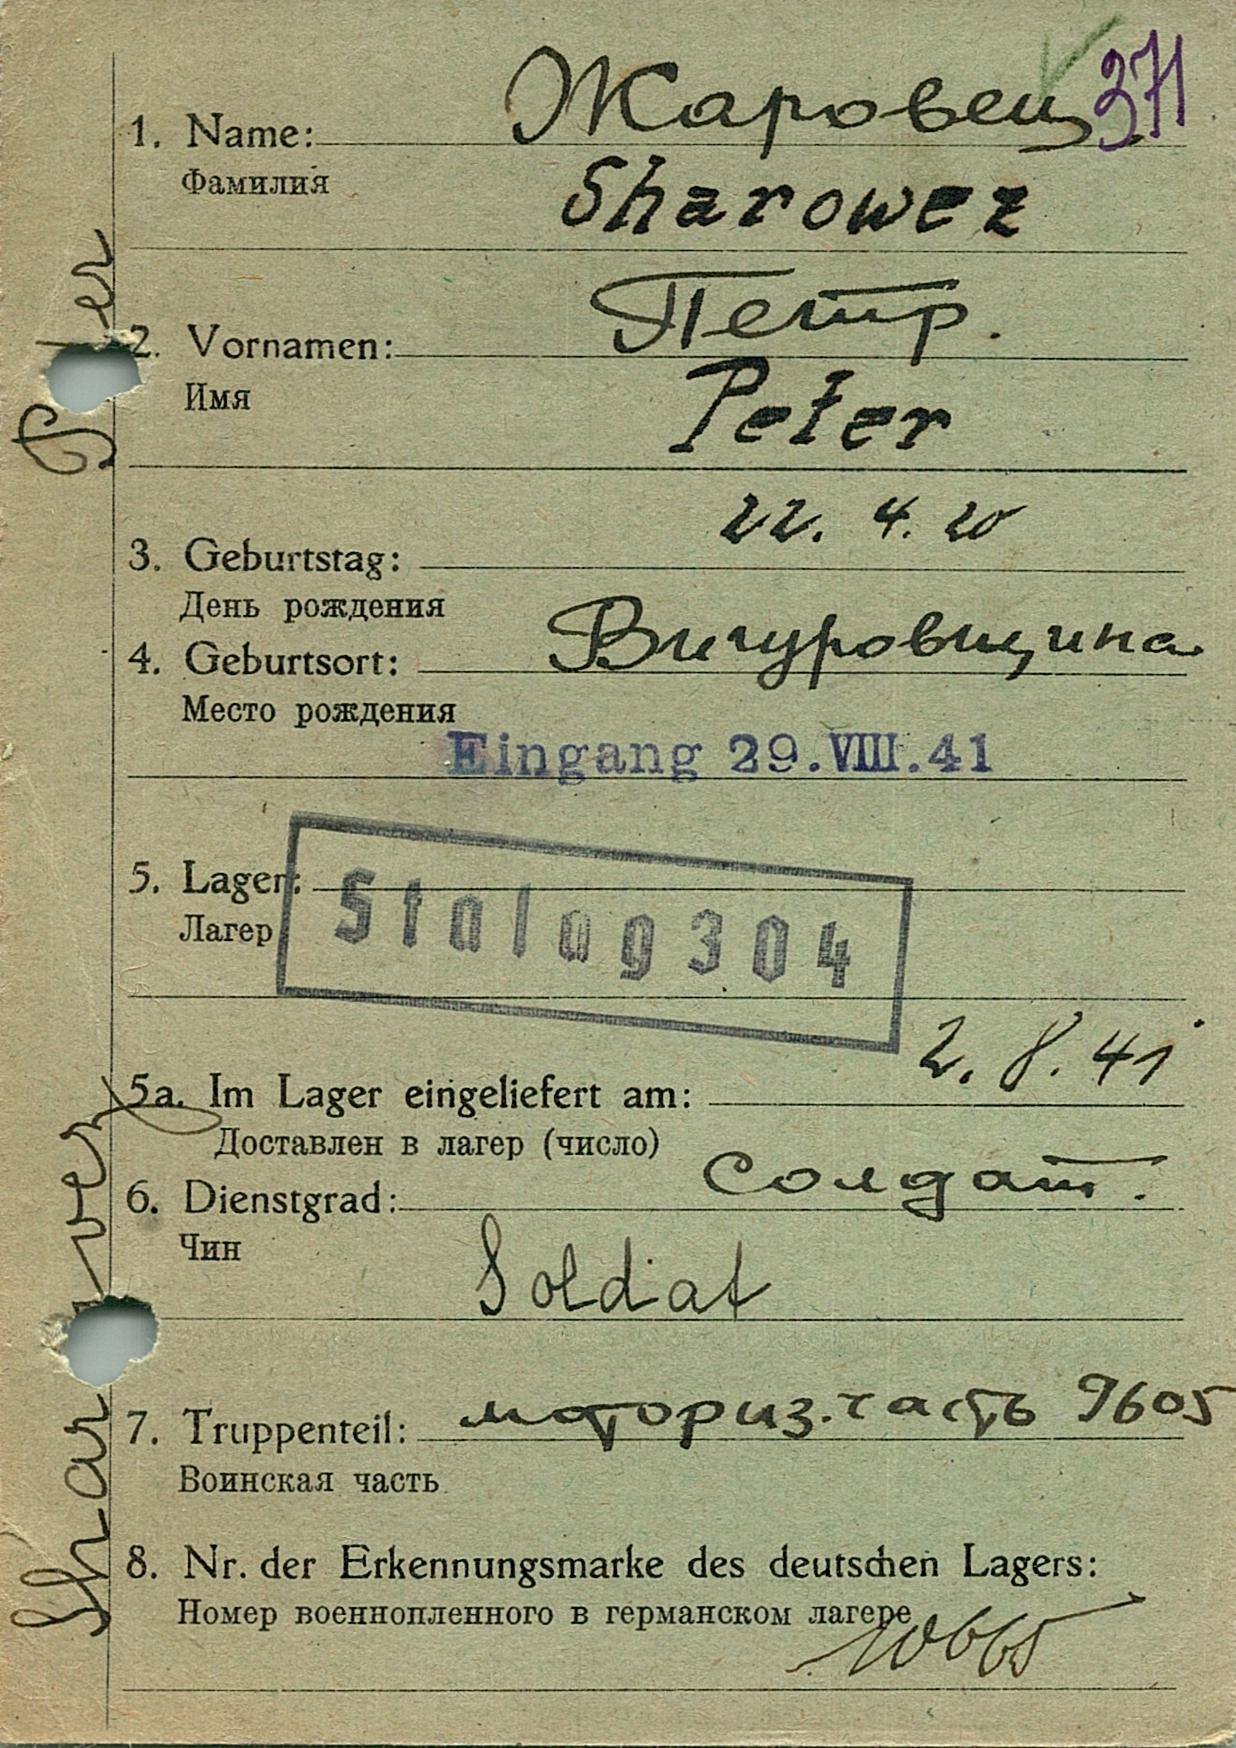 371
1. Name: Жаровец
Фамилия
Sharowez
2. Vornamen: Петр.
Имя
Peter
22. 4. 20
3. Geburtstag:
День рождения
4. Geburtsort: Вигуровщина
Место рождения
Eingang 29.VIII.41
5. Lager:
Лагер
Stalag 304
2. 8. 41
5a. Im Lager eingeliefert am:
Доставлен в лагер (число)
6. Dienstgrad: солдат.
Чин
Soldat
7. Truppenteil: моториз. часть 9605
Воинская часть
8. Nr. der Erkennungsmarke des deutschen Lagers:
Номер военнопленного в германском лагере
10665